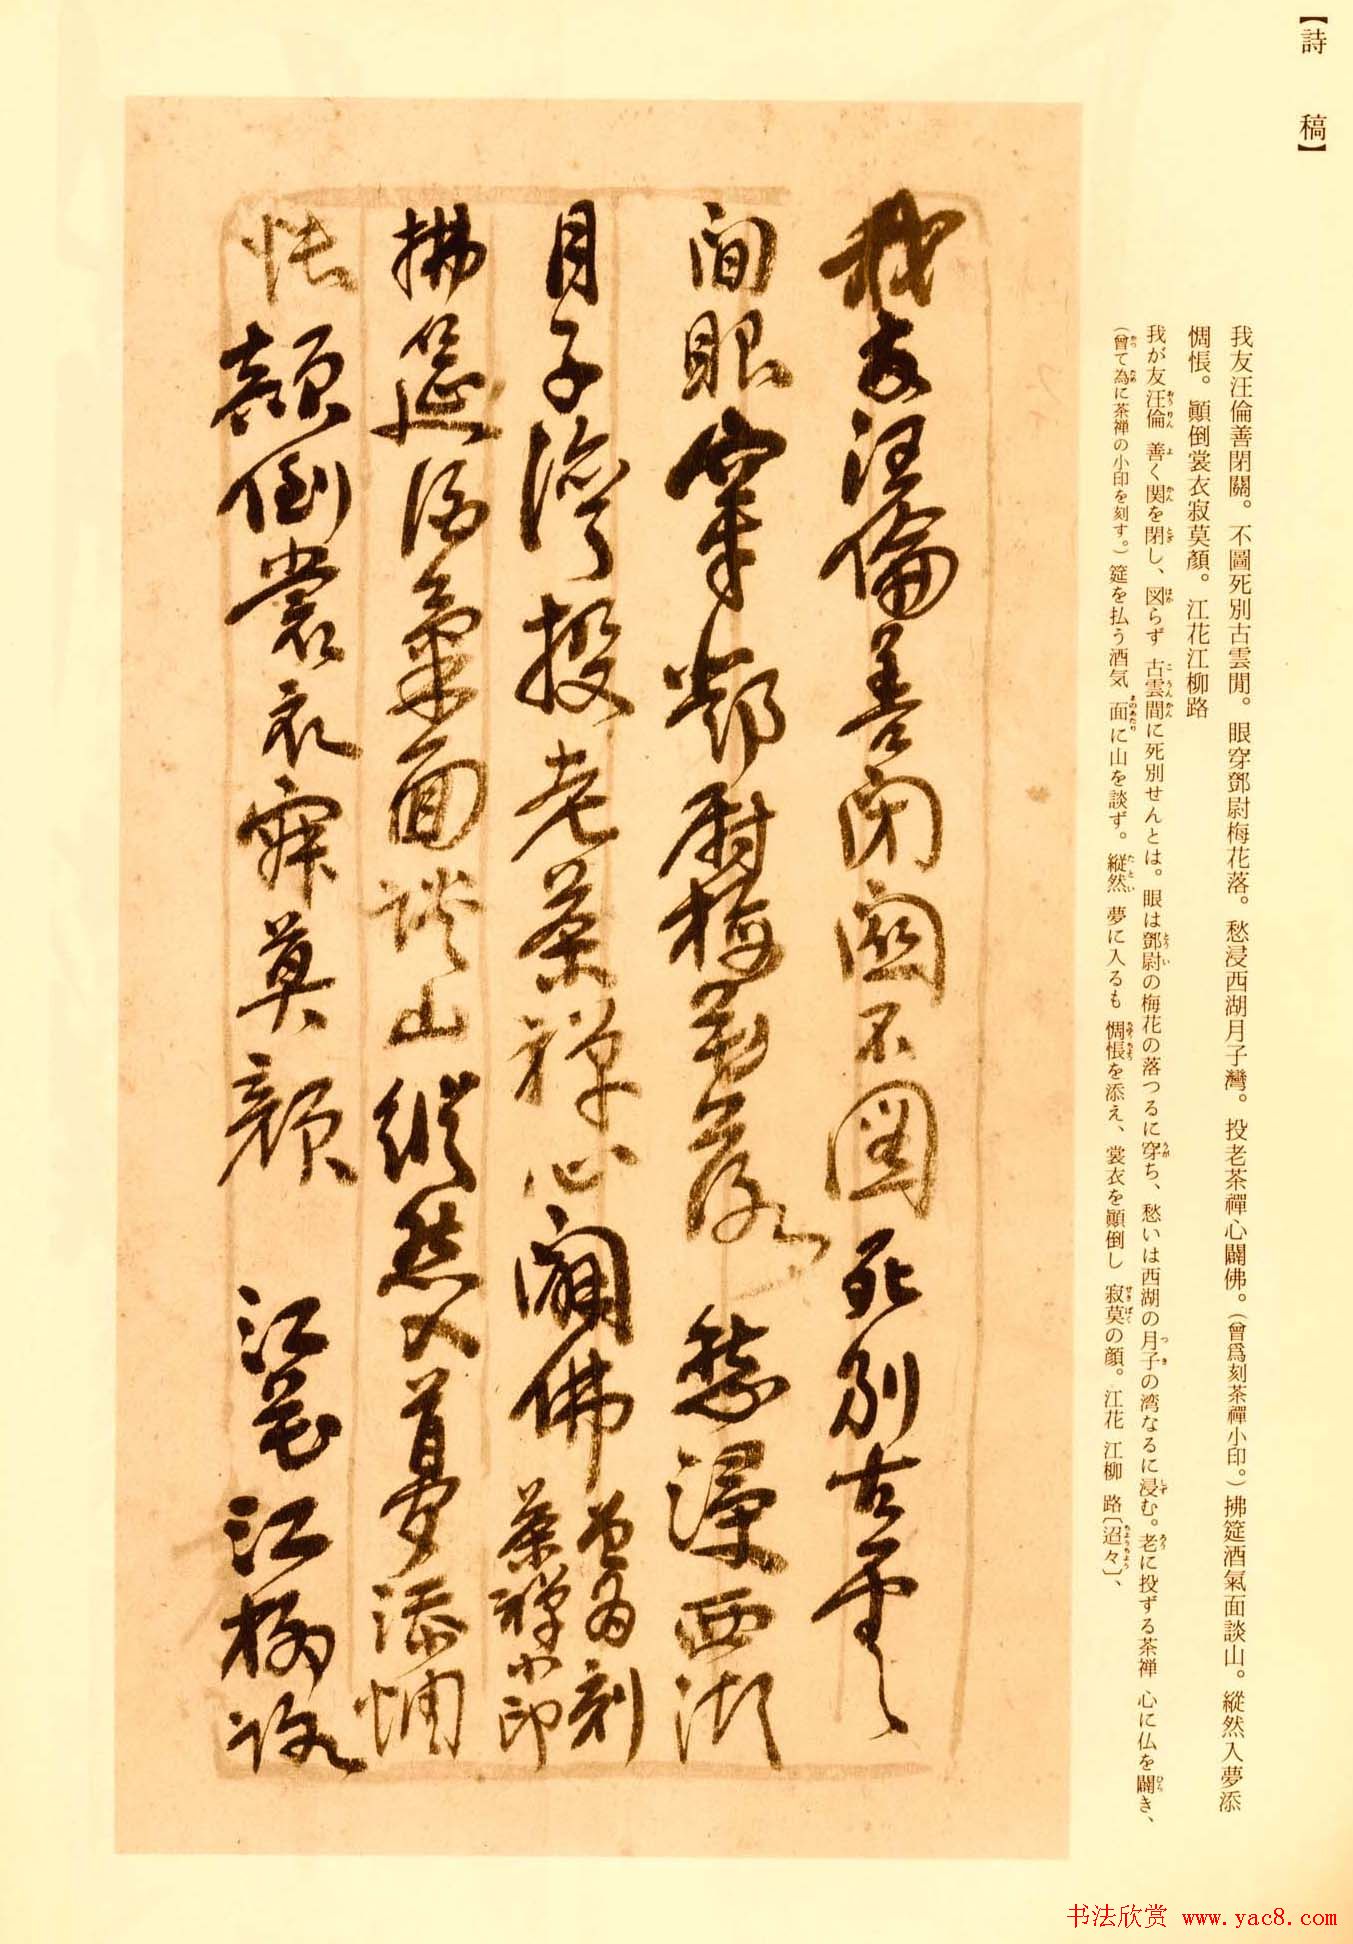 【詩稿】
我友汪倫善閉關。不圖死別古雲閒。眼穿鄧尉梅花落。愁浸西湖月子灣。投老茶禪心闢佛。（曾爲刻茶禪小印。）拂筵酒氣面談山。縱然入夢添
惆悵。顚倒裳衣寂莫顏。江花江柳路
我が友汪倫 善く関を閉し、図らず 古雲間に死別せんとは。眼は鄧尉の梅花の落つるに穿ち、愁いは西湖の月子の湾なるに浸む。老に投ずる茶禅 心に仏を闢き、
（曾て為に茶禅の小印を刻す。）筵を払う酒気 面に山を談ず。縦然 夢に入るも 惆悵を添え、裳衣を顚倒し 寂莫の顔。江花 江柳 路〔迢々〕、
我友汪倫善閉關不圖死別古雲
閒眼穿鄧尉梅花落愁浸西湖
月子灣投老茶禪心闢佛曾為刻茶禪小印
拂筵酒氣面談山縱然入夢添惆
悵顛倒裳衣寂莫顏江花江柳路
书法欣赏 www.yac8.com